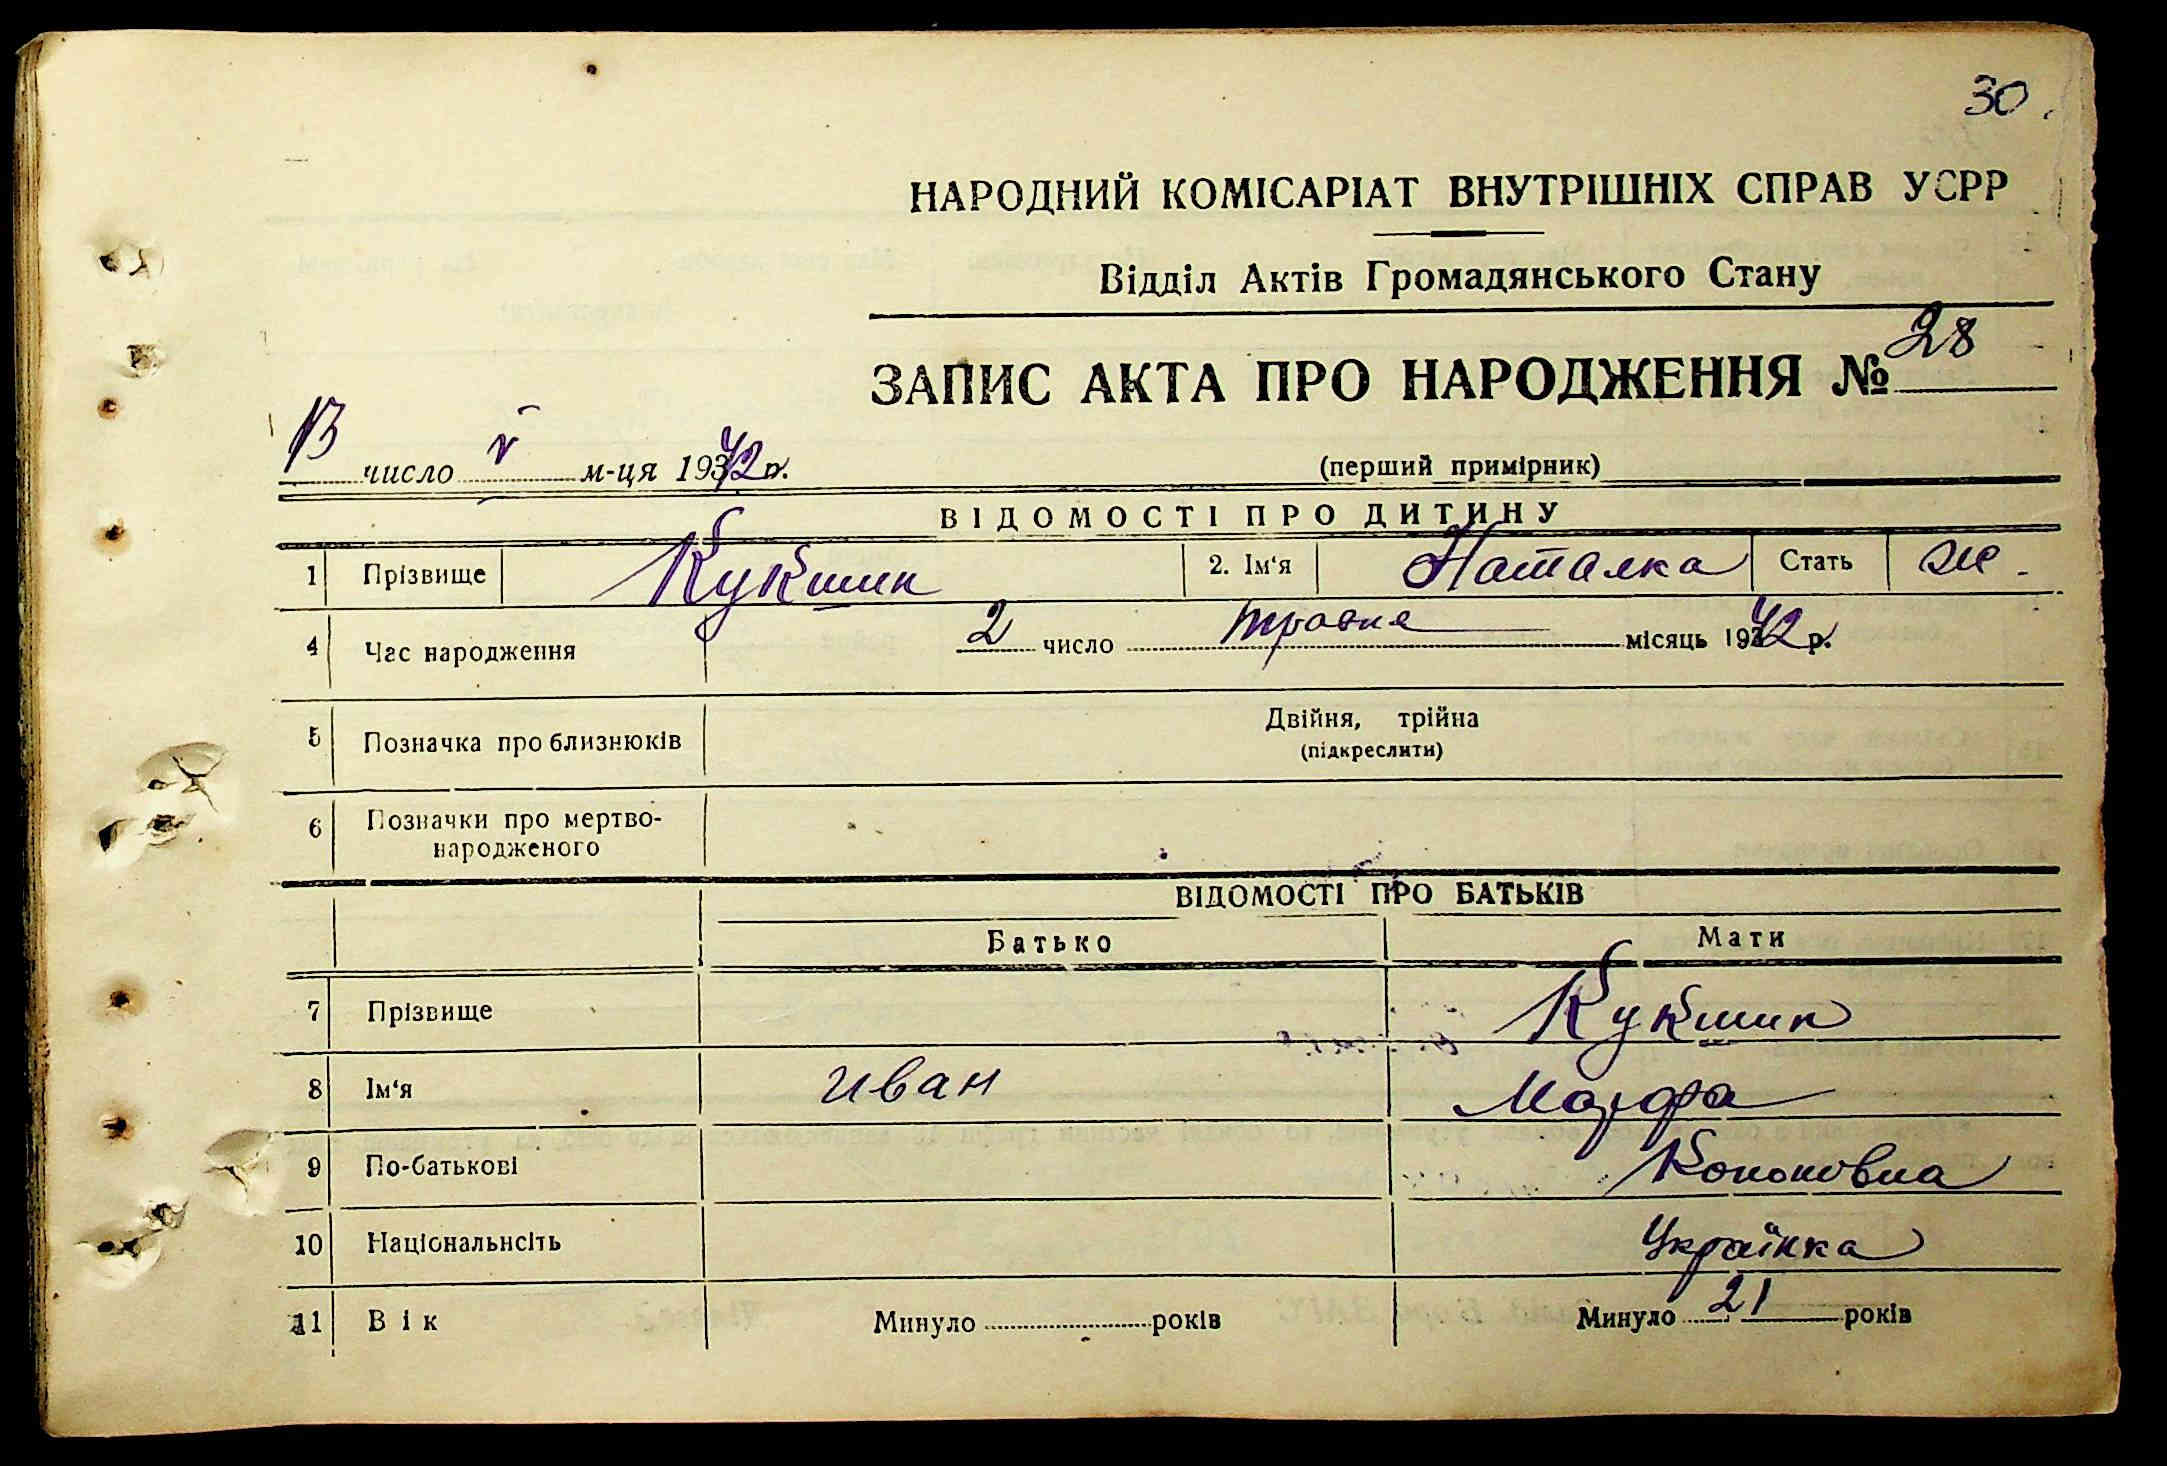 30.
НАРОДНИЙ КОМІСАРІАТ ВНУТРІШНІХ СПРАВ УСРР
Відділ Актів Громадянського Стану
ЗАПИС АКТА ПРО НАРОДЖЕННЯ № 28
13 число V м-ця 1942 р. (перший примірник)
ВІДОМОСТІ ПРО ДИТИНУ
1 Прізвище Кукшин 2. Ім'я Наталка Стать ж.
4 Час народження 2 число травня місяць 1942 р.
5 Позначка про близнюків Двійня, трійна
(підкреслити)
6 Позначки про мертво-
народженого
ВІДОМОСТІ ПРО БАТЬКІВ
Батько Мати
7 Прізвище Кукшин
8 Ім'я Иван Марфа
9 По-батькові Кононовна
10 Національнсіть Українка
11 Вік Минуло років Минуло 21 років